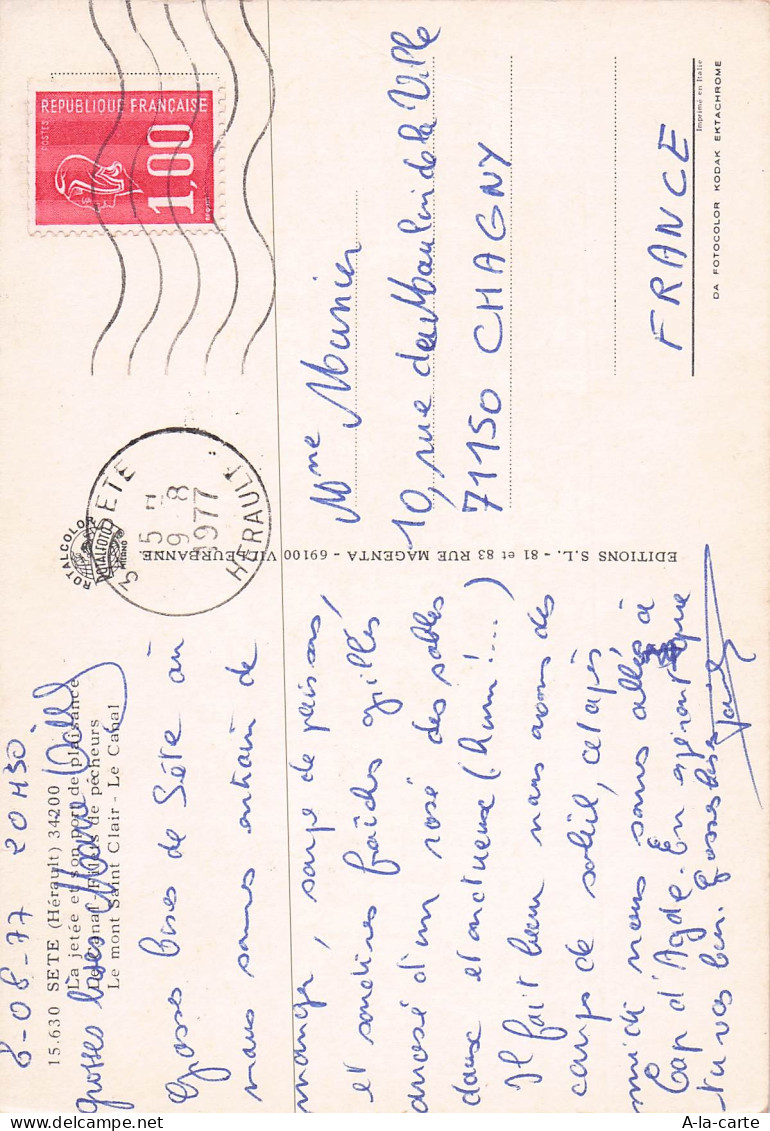 8-08-77 20H30.
15.630 SETE (Hérault) 34200
La jetée et son port de plaisance
Le mont Saint Clair - Le Canal
grosses bises
Grosses bises de Sète où
nous sommes entrain de
manger, soupe de poissons,
et sardines fraîches grillés
arrosé d'un rosé des sables
doux et onctueux (! hum!...)
Il fait beau nous avons des
coups de soleil, cet après
midi nous sommes allés à
Cap d'Agde. En espérant que
tu vas bien. Grosses bises
ROTALCOLOR
ROTALFOTO
MILANO
EDITIONS S.L. - 81 et 83 RUE MAGENTA - 69100 VILLEURBANNE
34 SETE
5 H
9 - 8
1977
HERAULT
REPUBLIQUE FRANÇAISE
POSTES
1,00
Mme Munier
10, rue du Moulin de la Ville
71150 CHAGNY
FRANCE
Imprimé en Italie
DA FOTOCOLOR KODAK EKTACHROME
A-la-carte